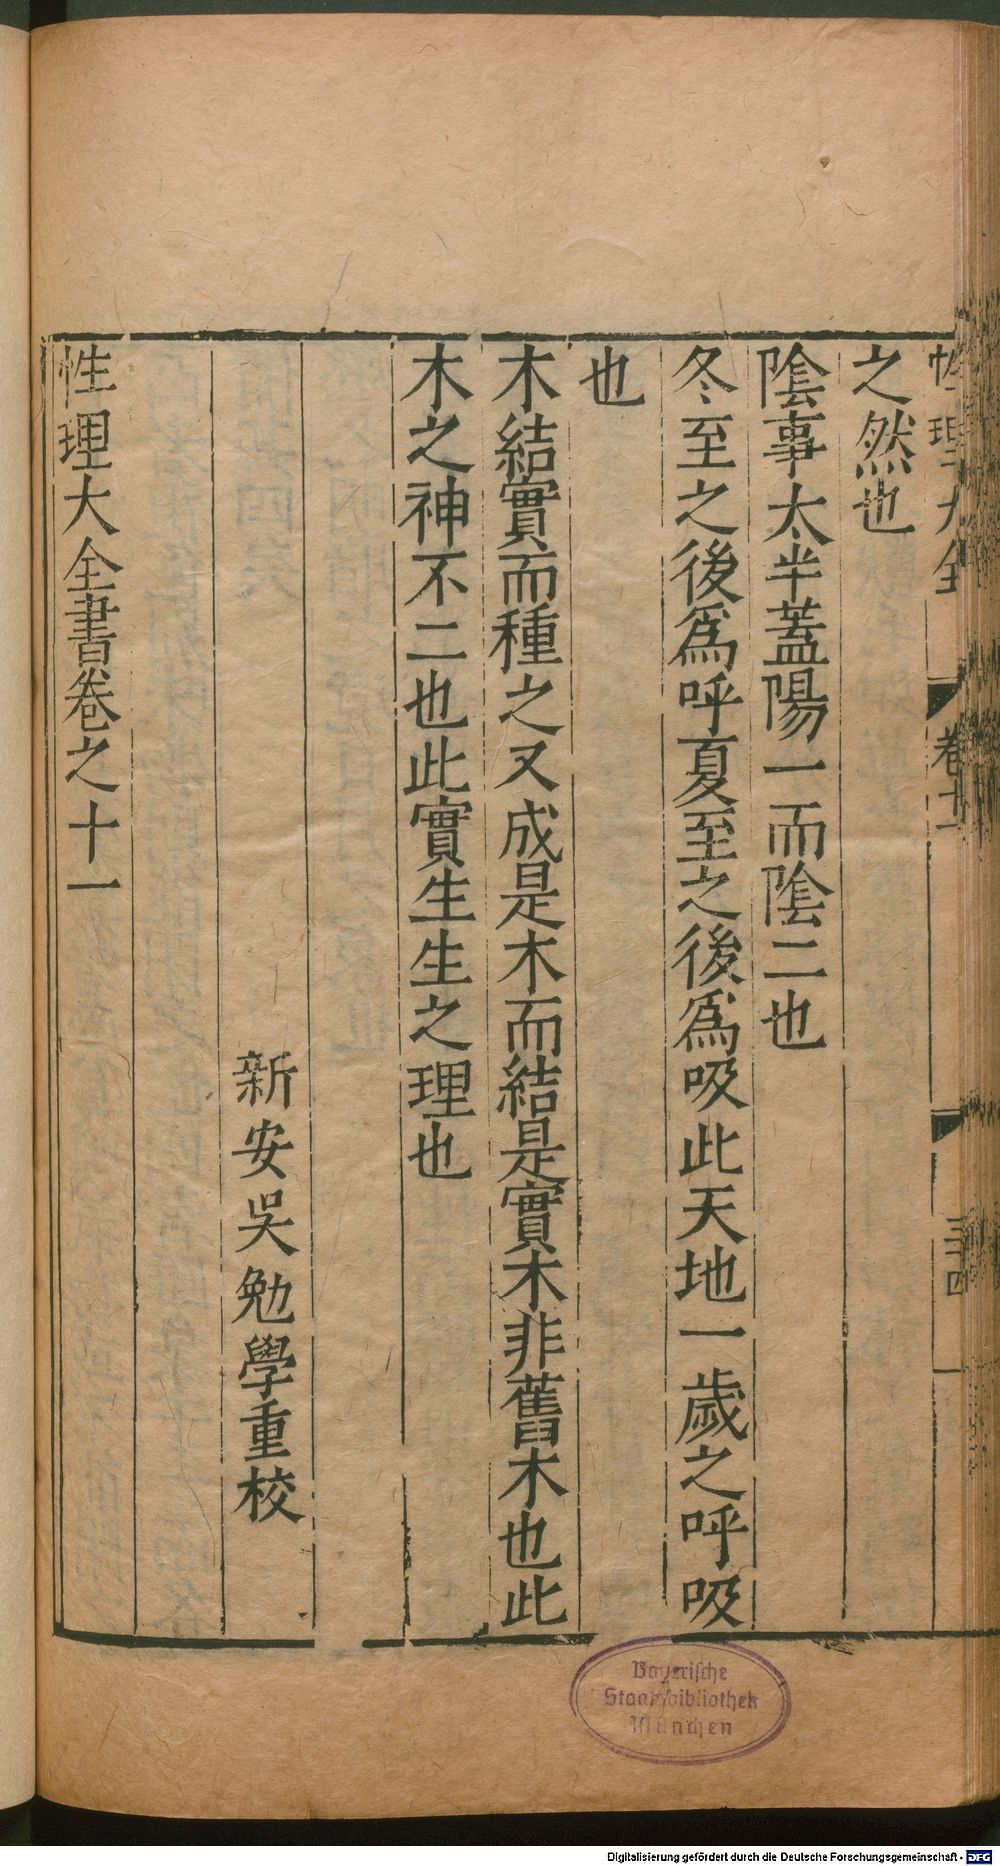 性理大全 卷十一 三十四
之然也
陰事太半蓋陽一而陰二也
冬至之後爲呼夏至之後爲吸此天地一歲之呼吸
也
木結實而種之又成是木而結是實木非舊木也此
木之神不二也此實生生之理也
新安吳勉學重校
性理大全書卷之十一
Bayerische
Staatsbibliothek
München
Digitalisierung gefördert durch die Deutsche Forschungsgemeinschaft - DFG